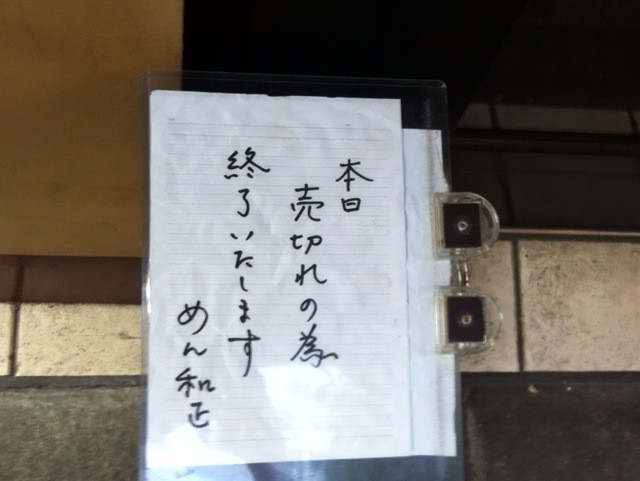 本日
売切れの為
終了いたします
めん和正